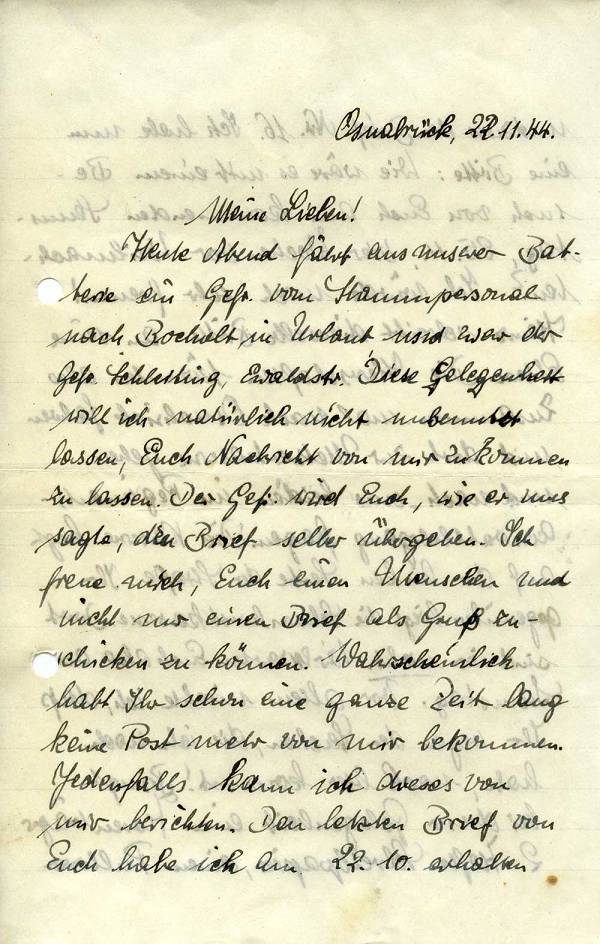 Osnabrück, 22.11.44.
Meine Lieben!
Heute Abend fährt aus unserer Bat-
terie ein Gefr. vom Stammpersonal
nach Bocholt in Urlaub und zwar der
Gefr. Schlesting, Ewaldstr. Diese Gelegenheit
will ich natürlich nicht unbenutzt
lassen, Euch Nachricht von mir zukommen
zu lassen. Der Gefr. wird Euch, wie er uns
sagte, den Brief selber übergeben. Ich
freue mich, Euch einen Menschen und
nicht nur einen Brief als Gruß zu-
schicken zu können. Wahrscheinlich
habt Ihr schon eine ganze Zeit lang
keine Post mehr von mir bekommen.
Jedenfalls kann ich dieses von
mir berichten. Den letzten Brief von
Euch habe ich am 22.10. erhalten